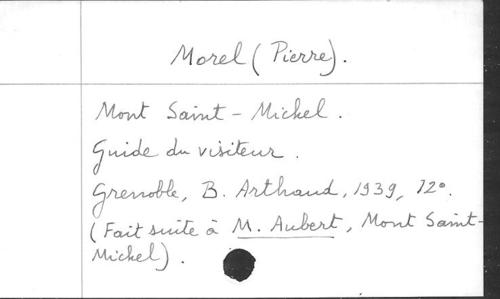 Morel (Pierre).
Mont Saint-Michel.
Guide du visiteur.
Grenoble, B. Arthaud, 1939, 12°.
(Fait suite à M. Aubert, Mont Saint-
Michel).